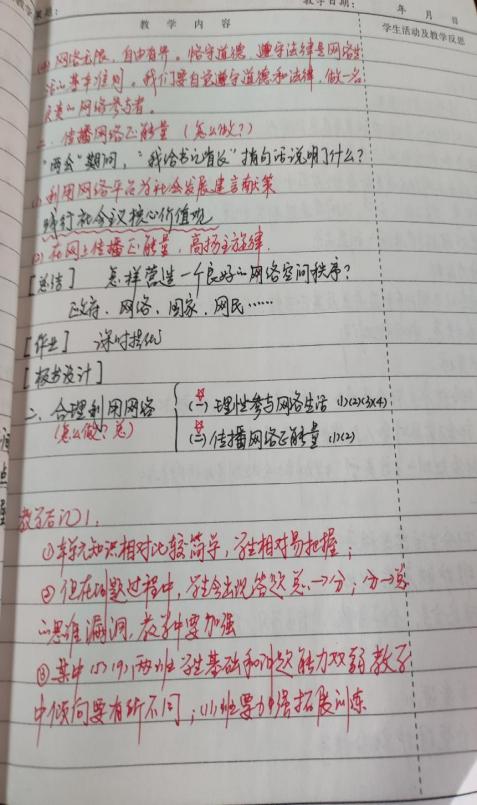 教学日期： 年 月 日
教 学 内 容 学生活动及教学反思
(4) 网络无限，自由有界。恪守道德、遵守法律是网络生
活的基本准则。我们要自觉遵守道德和法律，做一名
负责的网络参与者。
二、传播网络正能量（怎么做？）
“两会”期间，“我给书记省长”捎句话说明了什么？
(1) 利用网络平台为社会发展建言献策
践行社会主义核心价值观
(2) 在网上传播正能量，高扬主旋律.
[总结] 怎样营造一个良好的网络空间秩序？
政府、网络、国家、网民……
[作业] 课时提优
[板书设计]
二、合理利用网络
(怎么做？总)
(一) 理性参与网络生活 (1)(2)(3)(4)
(二) 传播网络正能量 (1)(2)
教学后记1.
①本单元知识相对比较简单，学生相对易把握；
②但在 题过程中，学生会出现答题总→分；分→总
的思维漏洞，教学中要加强
③其中 两班学生基础和 题能力较弱 教学
中倾向要有所不同； 班要加强拓展训练